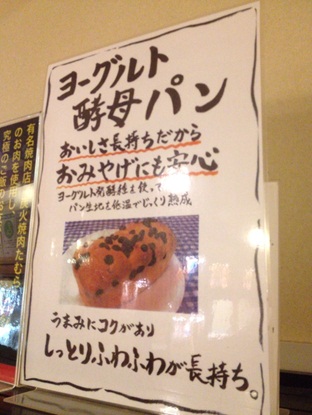 ヨーグルト
酵母パン
おいしさ長持ちだから
おみやげにも安心
ヨーグルト発酵種を使って
パン生地を低温でじっくり熟成
うまみにコクがあり
しっとりふわふわが長持ち。
有名焼肉店
火焼肉たむら
のお肉を使用し
究極のご飯のお